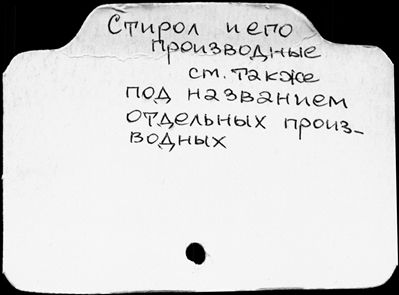 Стирол и его
производные
см. также
под названием
отдельных произ-
водных